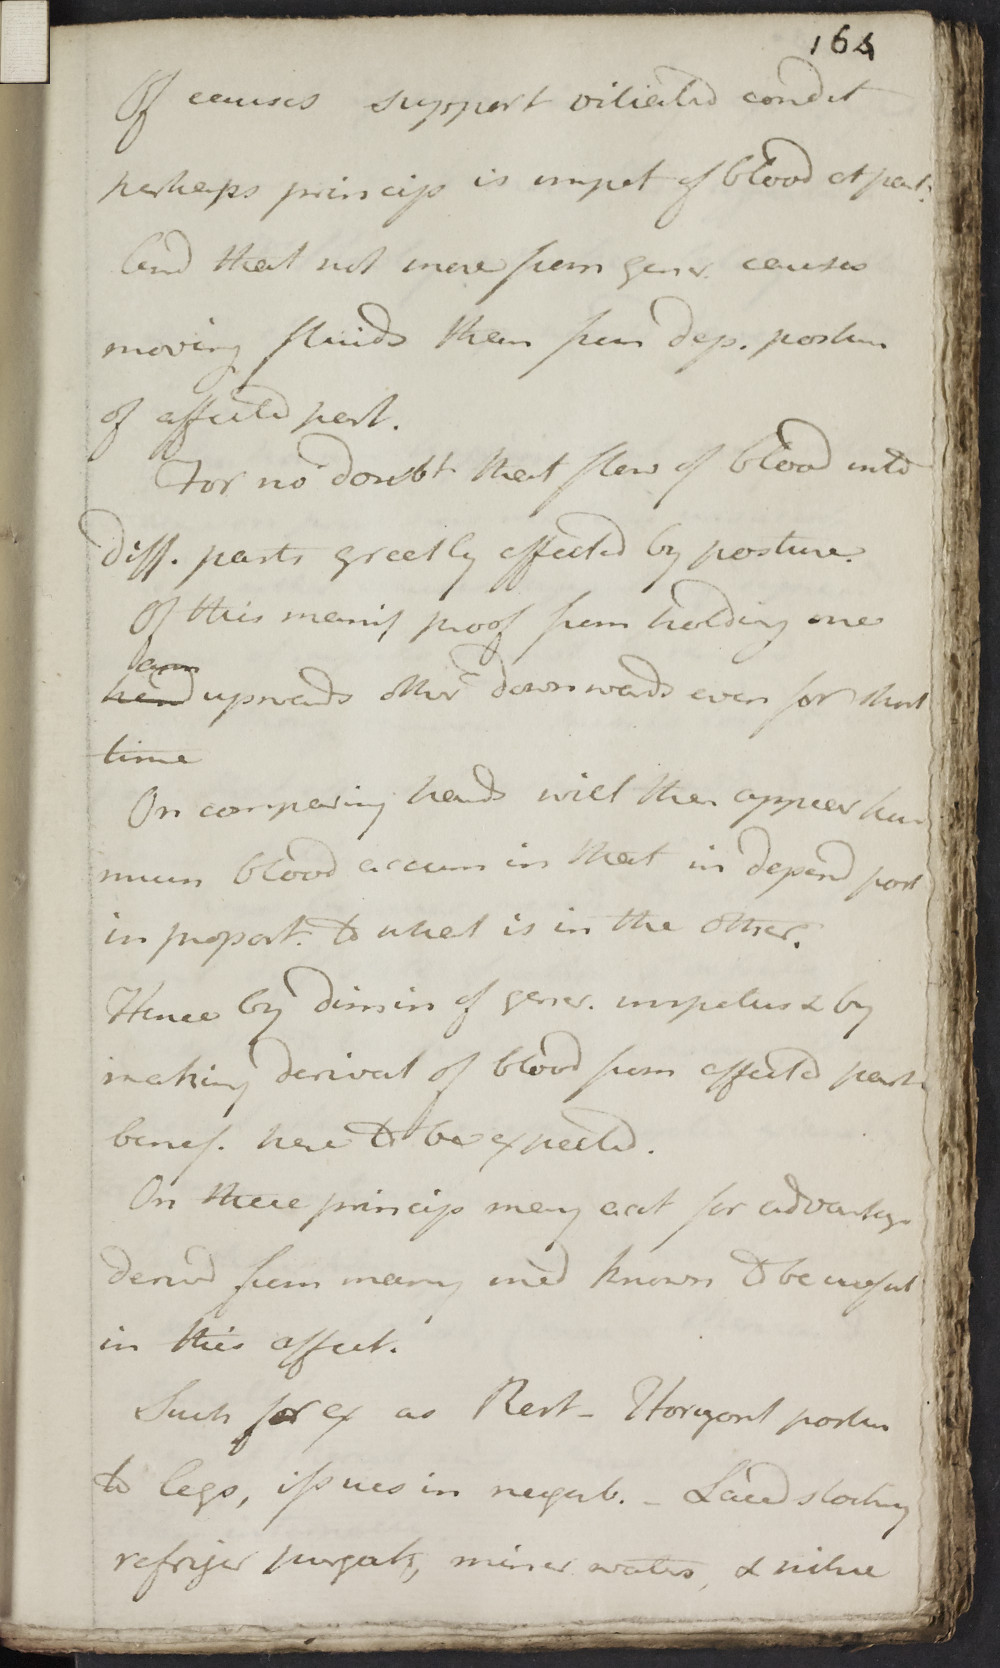 164
Of causes support vitiated condit
perhaps princip is impet of blood at part.
And that not more from gener. causes
moving fluids than from dep. postur
of affected part.
For no doubt that flow of blood into
diff. parts greatly affected by posture.
Of this manif proof from holding one
arm
hand upwards other downwards even for short
time
On comparing hands will then appear how
much blood accum in that in depend post
in proport. to what is in the other.
Hence by dimin of gener. impetus & by
making derivat of blood from affected part
benef. here to be expected.
On these princip may acct for advantage
derivd from many med known to be useful
in this affect.
Such for ex as Rest - Horizont postur
to legs, issues in neighb. - Laced stocking
refriger purgats, miner waters, & nitre